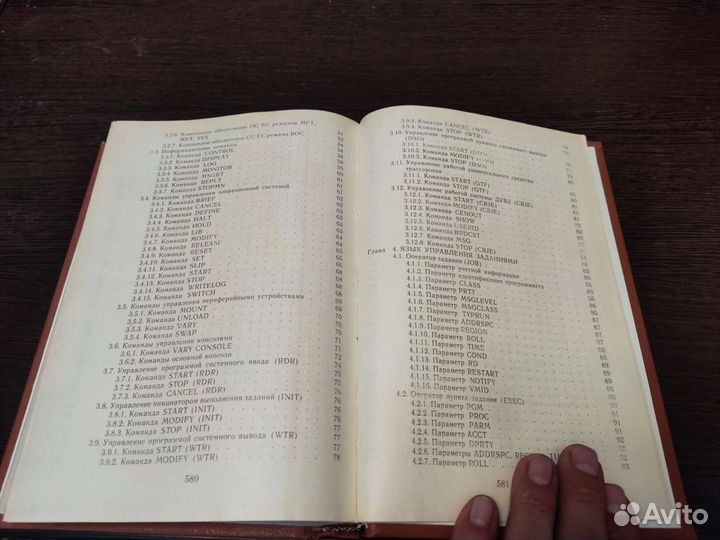 3.2.6. Консольное обеспечение ОС ЕС режимов MFT,
MVT, SVS 51
3.2.7. Консольное обеспечение ОС ЕС режима БОС 52
3.3. Информационные команды 54
3.3.1. Команда CONTROL
3.3.2. Команда DISPLAY
3.3.3. Команда LOG
3.3.4. Команда MONITOR
3.3.5. Команда MSGRT
3.3.6. Команда REPLY
3.3.7. Команда STOPMN
3.4. Команды управления операционной системой
3.4.1. Команда BRIEF
3.4.2. Команда CANCEL
3.4.3. Команда DEFINE
3.4.4. Команда HALT
3.4.5. Команда HOLD
3.4.6. Команда LIB
3.4.7. Команда MODIFY
3.4.8. Команда RELEASE
3.4.9. Команда RESET
3.4.10. Команда SET
3.4.11. Команда SLIP
3.4.12. Команда START
3.4.13. Команда STOP
3.4.14. Команда WRITELOG
3.4.15. Команда SWITCH
3.5. Команды управления периферийными устройствами
3.5.1. Команда MOUNT
3.5.2. Команда UNLOAD
3.5.3. Команда VARY
3.5.4. Команда SWAP
3.6. Команды управления консолями
3.6.1. Команда VARY CONSOLE
3.6.2. Команды основной консоли
3.7. Управление программой системного ввода (RDR)
3.7.1. Команда START (RDR)
3.7.2. Команда STOP (RDR)
3.7.3. Команда CANCEL (RDR)
3.8. Управление инициатором выполнения заданий (INIT) 76
3.8.1. Команда START (INIT) 76
3.8.2. Команда MODIFY (INIT) 76
3.8.3. Команда STOP (INIT) 77
3.9. Управление программой системного вывода (WTR) 77
3.9.1. Команда START (WTR) 77
3.9.2. Команда MODIFY (WTR) 78
580
3.9.3. Команда CANCEL (WTR)
3.9.4. Команда STOP (WTR)
3.10. Управление программой прямого системного вывода
(DSO)
3.10.1. Команда START (DSO)
3.10.2. Команда MODIFY
3.10.3. Команда STOP (DSO)
3.11. Управление работой универсального средства
трассировки
3.11.1. Команда START (GTF)
3.11.2. Команда STOP (GTF)
3.12. Управление работой системы ДУВЗ (CRJE)
3.12.1. Команда START (CRJE)
3.12.2. Команда MODIFY (CRJE)
3.12.3. Команда CENOUT
3.12.4. Команда SHOW
3.12.5. Команда USERID
3.12.6. Команда BRDCST
3.12.7. Команда MSG
3.12.8. Команда STOP (CRJE)
Глава 4. ЯЗЫК УПРАВЛЕНИЯ ЗАДАНИЯМИ
4.1. Оператор задания (JOB)
4.1.1. Параметр учетной информации
4.1.2. Параметр идентификации программиста
4.1.3. Параметр CLASS
4.1.4. Параметр PRTY
4.1.5. Параметр MSGLEVEL
4.1.6. Параметр MSGCLASS
4.1.7. Параметр TYPRUN
4.1.8. Параметр ADDRSPC
4.1.9. Параметр REGION
4.1.10. Параметр ROLL
4.1.11. Параметр TIME
4.1.12. Параметр COND
4.1.13. Параметр RD
4.1.14. Параметр RESTART
4.1.15. Параметр NOTIFY
4.1.16. Параметр VMID
4.2. Оператор пункта задания (EXEC)
4.2.1. Параметр PGM
4.2.2. Параметр PROC
4.2.3. Параметр PARM
4.2.4. Параметр ACCT
4.2.5. Параметр DPRTY
4.2.6. Параметры ADDRSPC,
4.2.7. Параметр ROLL 93
581
Avito